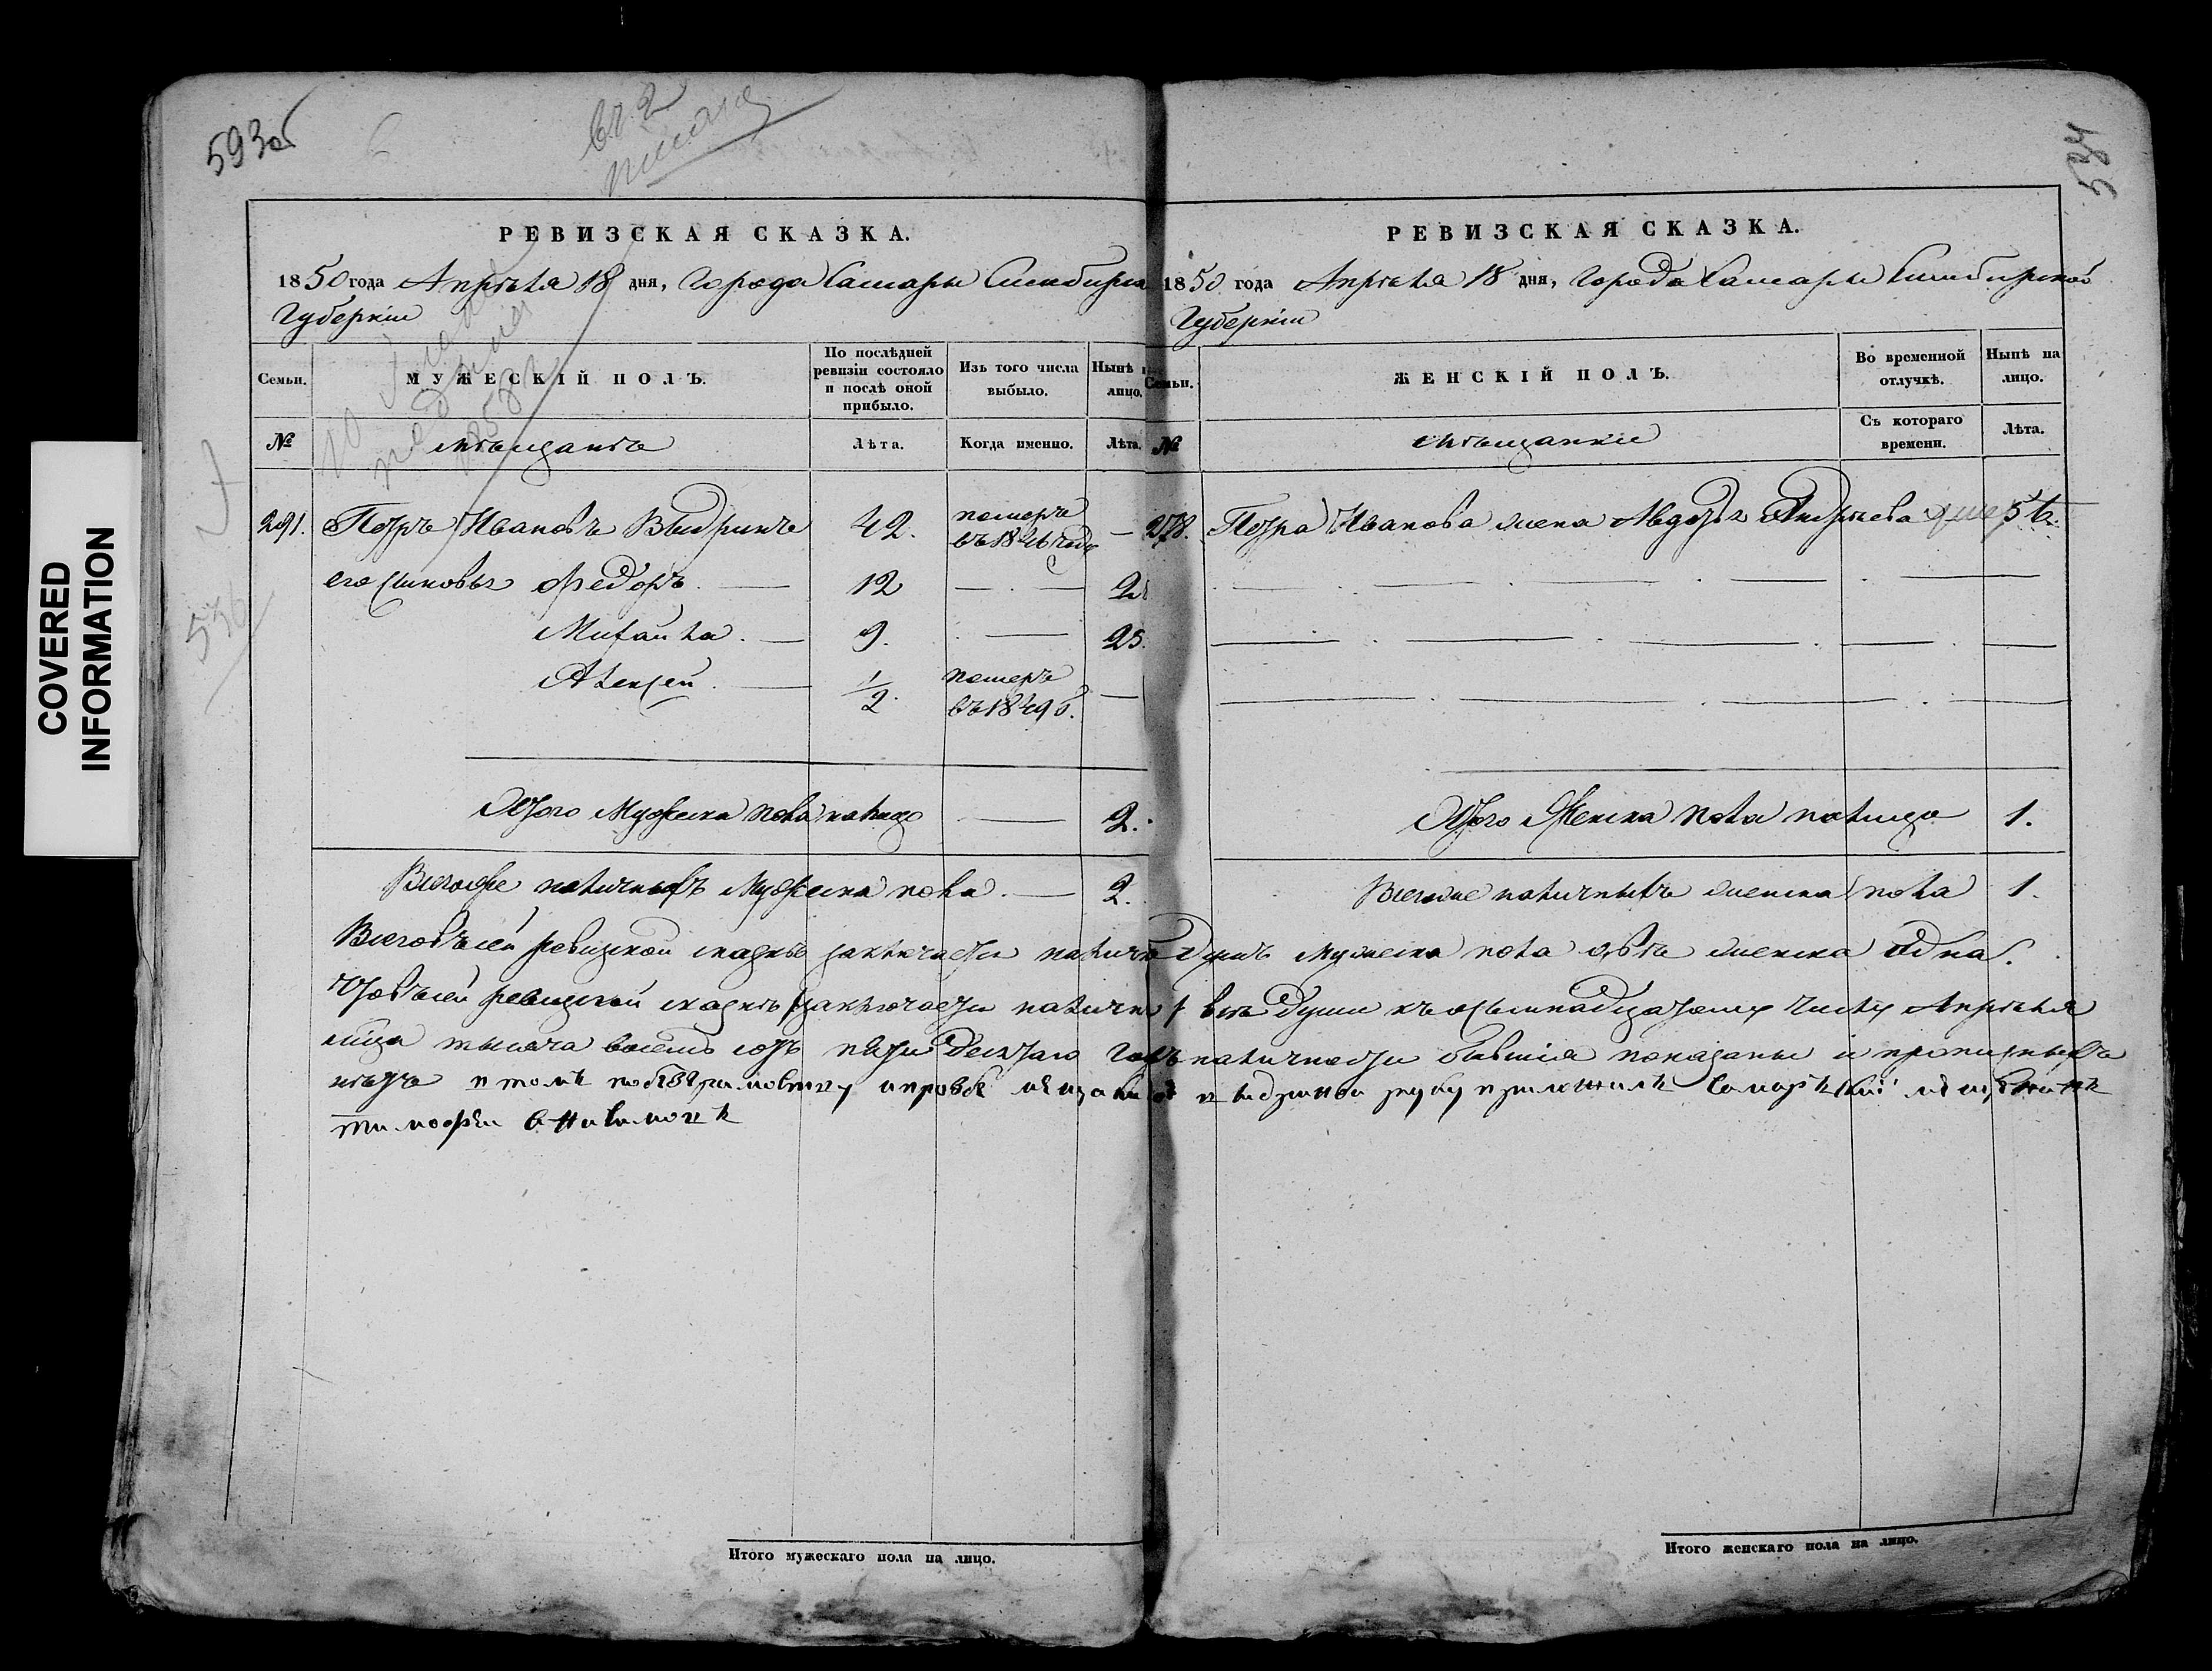 593об
въ 2
584
COVERED
INFORMATION
РЕВИЗСКАЯ СКАЗКА.
1850 года Апрѣля 18 дня, Города Самары Симбирск
Губерніи
Семьи.
МУЖЕСКІЙ ПОЛЪ.
По послѣдней
ревизіи состояло
и послѣ оной
прибыло.
Изъ того числа
выбыло.
Нынѣ
лицо.
№
Мѣщанѣ
Лѣта.
Когда именно.
Лѣта.
291. Петръ Ивановъ Выдринъ 42. померъ въ 1846 годѣ —
его сыновья Федоръ. — 12 — . — 2
Михайла. — 9. . — 23.
Алексей. — 1/2. померъ въ 1849 г. —
Итого Мужеска пола налицо — 2.
Всегоже наличныхъ Мужеска пола. — 2.
РЕВИЗСКАЯ СКАЗКА.
1850 года Апрѣля 18 дня, Города Самары Симбирской
Губерніи
Семьи.
ЖЕНСКІЙ ПОЛЪ.
Во временной
отлучкѣ.
Нынѣ на
лицо.
№
Мѣщанки
Съ котораго
времени.
Лѣта.
278. Петра Иванова жена Авдотья Андрѣева
Итого Женска пола налицо 1.
Всегоже наличныхъ женска пола 1.
Всего въ сей ревизской сказкѣ заключается налично душъ мужеска пола двѣ женска одна.
Что въ сей ревизской сказкѣ заключается наличн всѣ души къ осьмнадцатому числу Апрѣля
мца тысяча восемь сотъ пятидесятаго года наличности бывшія показаны и прописныхъ
нѣтъ в томъ руку приложилъ Самарскій мещанинъ
тимофеи
Итого мужескаго пола на лицо.
Итого женскаго пола на лицо.